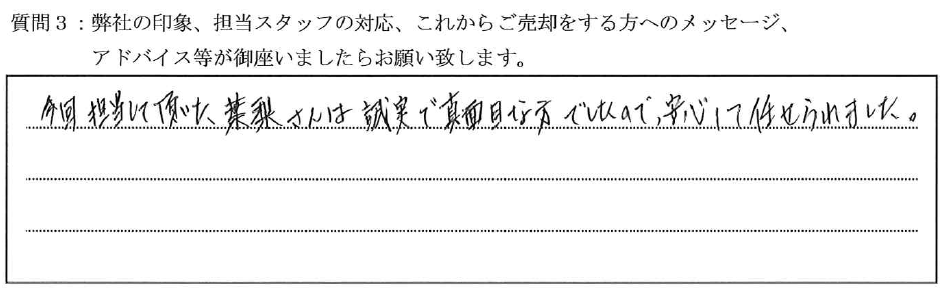 質問3：弊社の印象、担当スタッフの対応、これからご売却をする方へのメッセージ、
アドバイス等が御座いましたらお願い致します。
今回担当して頂いた葉梨さんは誠実で真面目な方でしたので、安心して任せられました。